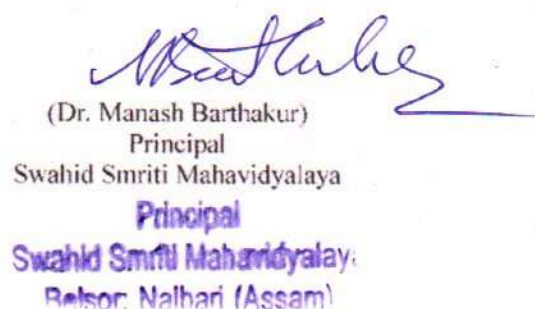 MBarthakur
(Dr. Manash Barthakur)
Principal
Swahid Smriti Mahavidyalaya
Principal
Swahid Smriti Mahavidyalaya
Belsor, Nalbari (Assam)